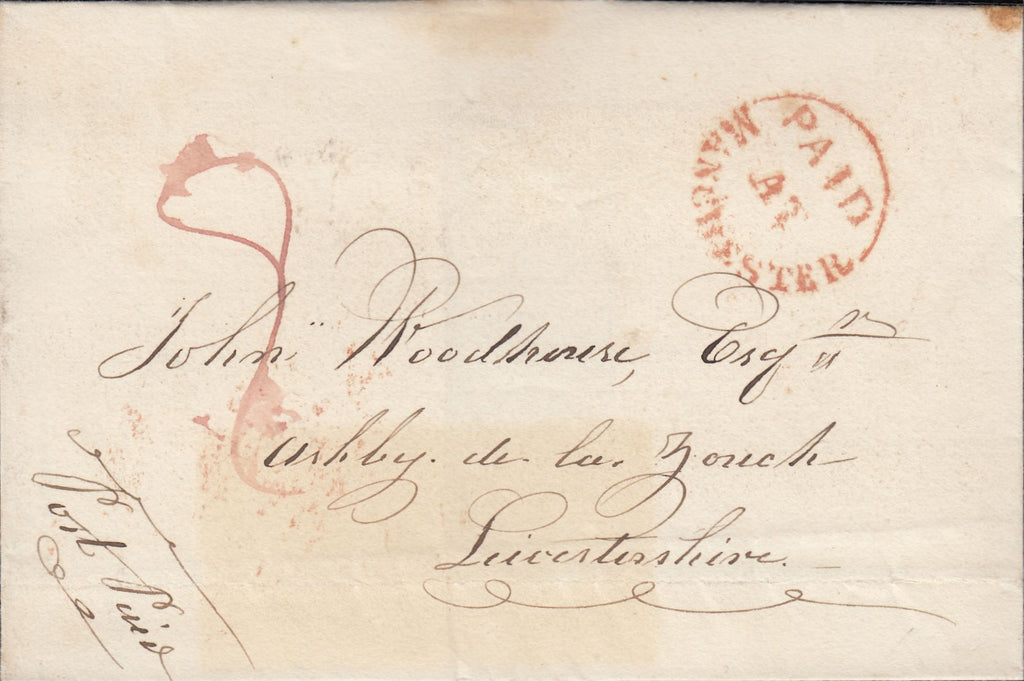 PAID
AT
MANCHESTER
John Woodhouse, Esqr
Ashby. de. la. Zouch
Leicestershire.
Post Paid